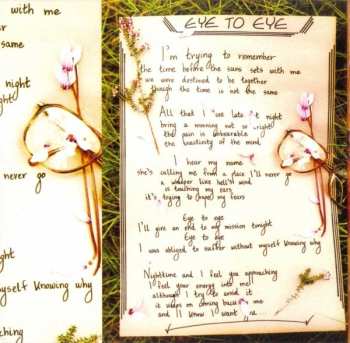 with me
same
night
never go
myself Knowing why
EYE TO EYE
I'm trying to remember
the time before the suns sets with me
we were destined to be together
though the time is not the same
All that I late night
bring a morning out so right
the pain is unbearable
the of the mind
I hear my name
she's calling me from a place I'll never go
a whisper like hell's wind
is touching my ears
it's trying to my fears
Eye to eye
I'll give an end to my mission tonight
Eye to eye
I was obliged to suffer without myself Knowing why
Nighttime and I feel you approaching
I feel your energy into me
although I try to avoid it
it keeps on coming back me
and I know I want